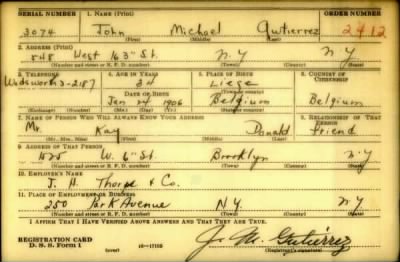 SERIAL NUMBER 1. NAME (Print) ORDER NUMBER
3074 John Michael Gutierrez 2412
(First) (Middle) (Last)
2. ADDRESS (Print)
548 West 163rd St. N.Y N Y
(Number and street or R. F. D. number) (Town) (County) (State)
3. TELEPHONE 4. AGE IN YEARS 5. PLACE OF BIRTH 6. COUNTRY OF CITIZENSHIP
Wadsworth 3-2187 34 Liege
DATE OF BIRTH (Town or county)
Jan 24 1906 Belgium Belgium
(Exchange) (Number) (Mo.) (Day) (Yr.) (State or country)
7. NAME OF PERSON WHO WILL ALWAYS KNOW YOUR ADDRESS 8. RELATIONSHIP OF THAT PERSON
Mr. Kay Donald friend
(Mr., Mrs., Miss) (First) (Middle) (Last)
9. ADDRESS OF THAT PERSON
1525 W. 6th St. Brooklyn N.Y
(Number and street or R. F. D. number) (Town) (County) (State)
10. EMPLOYER'S NAME
J. H. Thorp & Co.
11. PLACE OF EMPLOYMENT OR BUSINESS
250 Park Avenue N.Y. N.Y
(Number and street or R. F. D. number) (Town) (County) (State)
I AFFIRM THAT I HAVE VERIFIED ABOVE ANSWERS AND THAT THEY ARE TRUE.
REGISTRATION CARD
D. S. S. Form 1 (over) 16-17105 J. M. Gutiérrez